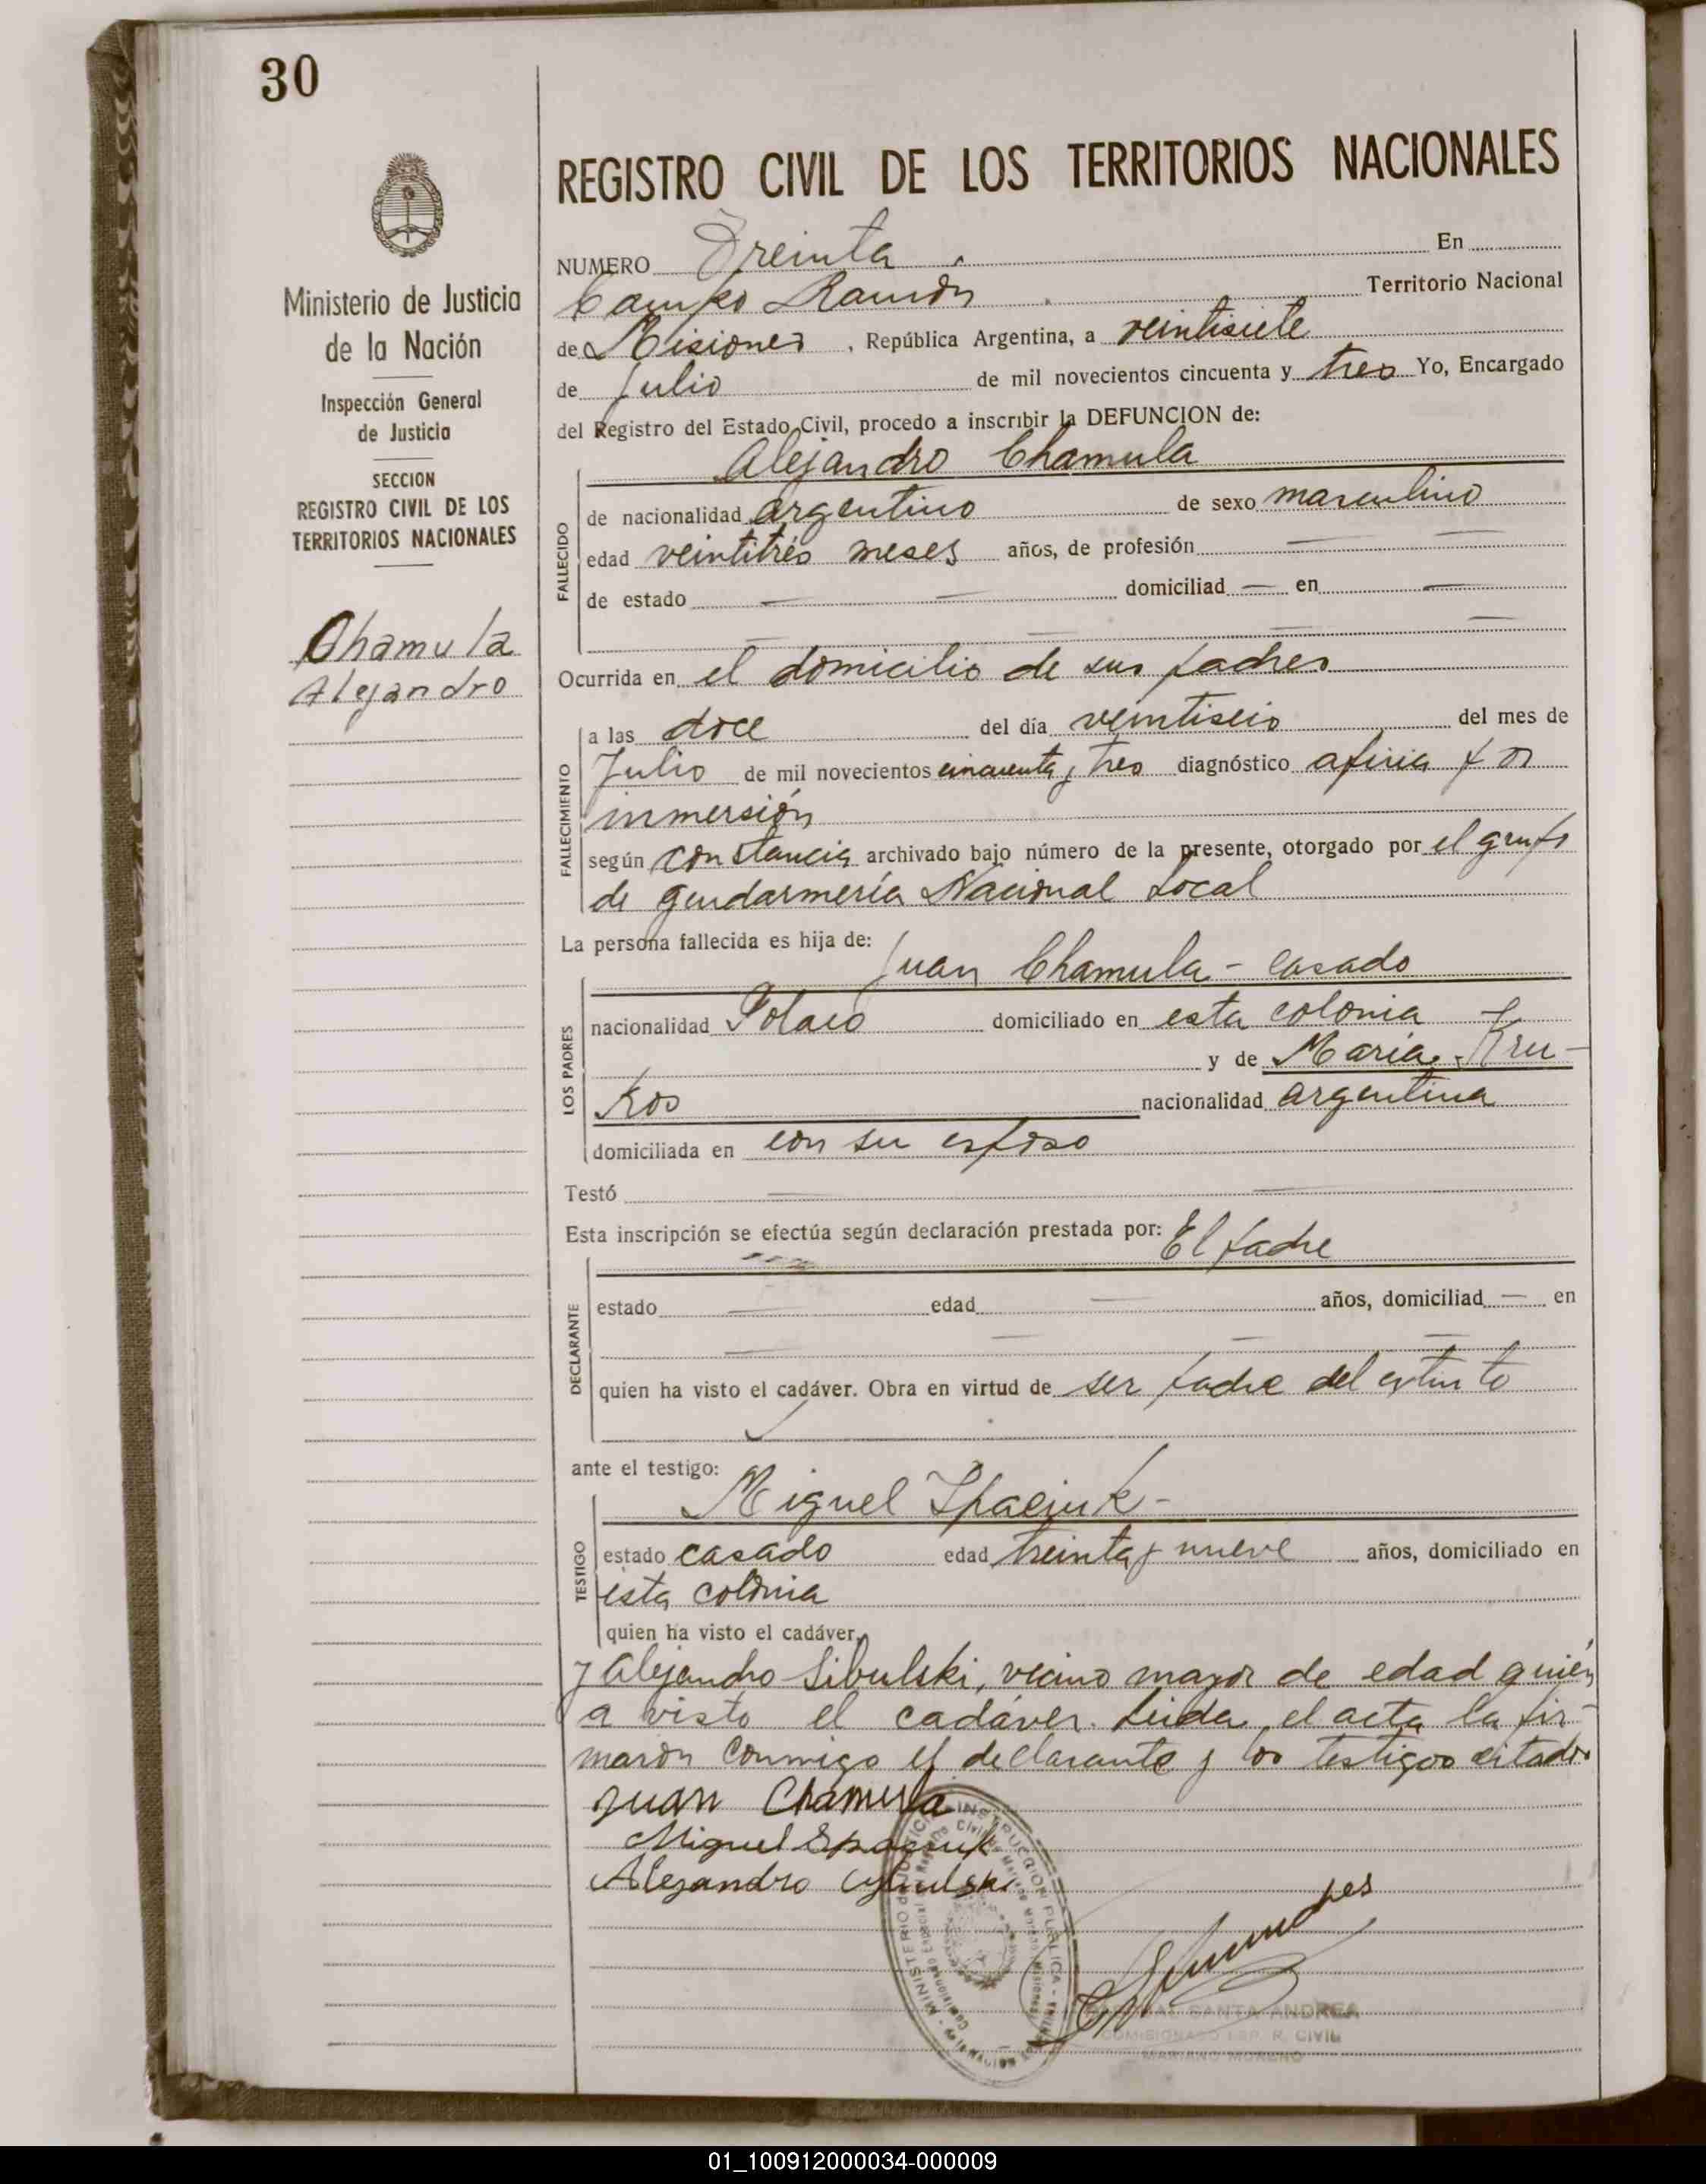 30
Ministerio de Justicia
de la Nación
Inspección General
de Justicia
SECCION
REGISTRO CIVIL DE LOS
TERRITORIOS NACIONALES
Chamula
Alejandro
REGISTRO CIVIL DE LOS TERRITORIOS NACIONALES
NUMERO Treinta En
Campo Ramón Territorio Nacional
de Misiones, República Argentina, a veintisiete
de Julio de mil novecientos cincuenta y tres Yo, Encargado
del Registro del Estado Civil, procedo a inscribir la DEFUNCION de:
Alejandro Chamula
FALLECIDO
de nacionalidad argentino de sexo masculino
edad veintitrés meses años, de profesión —
de estado — domiciliad — en —
Ocurrida en el domicilio de sus padres
FALLECIMIENTO
a las doce del día veintiseis del mes de
Julio de mil novecientos cincuenta y tres diagnóstico afixia por
inmersión
según constancia archivado bajo número de la presente, otorgado por el grupo
de gendarmería Nacional Local
La persona fallecida es hija de:
Juan Chamula - casado
LOS PADRES
nacionalidad Polaco domiciliado en esta colonia
y de María Kru-
kos nacionalidad argentina
domiciliada en con su esposo
Testó —
Esta inscripción se efectúa según declaración prestada por: El padre
DECLARANTE
estado — edad — años, domiciliad — en
quien ha visto el cadáver. Obra en virtud de ser padre del extinto
ante el testigo:
Miguel Spaciuk -
TESTIGO
estado casado edad treinta y nueve años, domiciliado en
esta colonia
quien ha visto el cadáver,
y Alejandro Sibulski, vecino mayor de edad quién
a visto el cadáver. Leida el acta la fir-
marón conmigo el declarante y los testigos citados
Juan Chamula
Miguel Spaciuk
Alejandro Cybulski
MINISTERIO DE JUSTICIA INSTRUCCION PUBLICA
SANTA ANDREA
COMISIONADO ESP. R. CIVIL
MARIANO MORENO
01_100912000034-000009